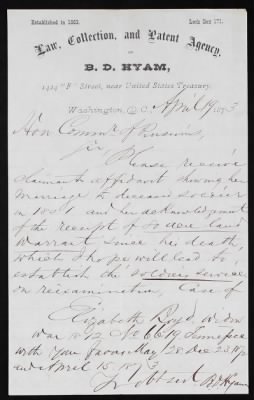 Established in 1863. Lock Box 171.
Law, Collection, and Patent Agency,
OF
B. D. HYAM,
1424 "F" Street, near United States Treasury.
Washington, D. C. April 19 1873
Hon Commr of Pensions,
Sir, Please receive
claimants affidavit showing her
marriage to deceased soldier
in 1801 and her acknowledgment
of the receipt of 80 acre land
Warrant since his death,
which I hope will lead to
establish the soldiers service
on reexamination, Case of
Elizabeth Boyd, widow
War 1812 No 6619 Tennessee
with your favors May 28 Dec 23
and April 15, 1873
B D Hyam